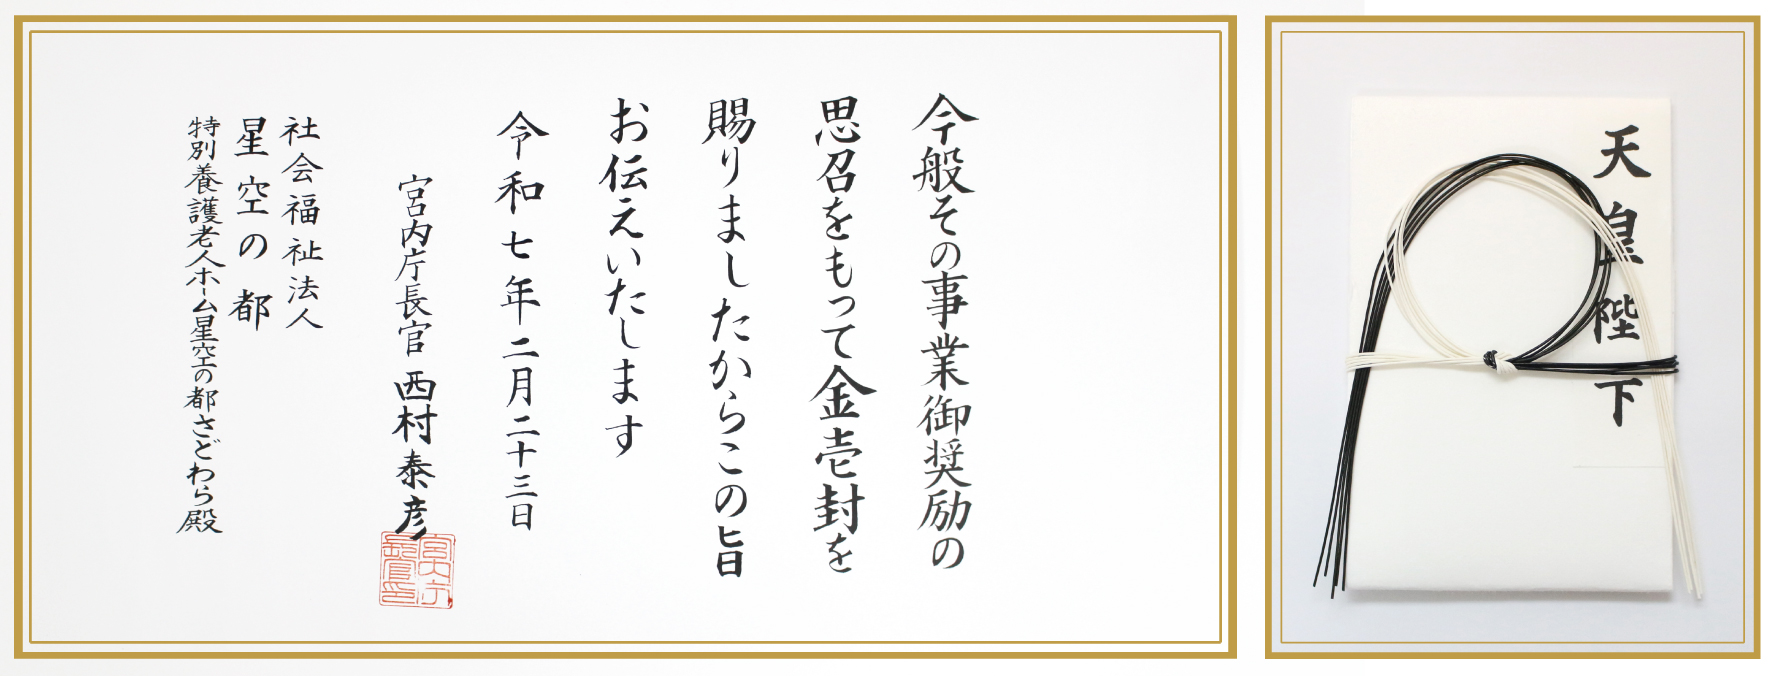 今般その事業御奨励の
思召をもって金壱封を
賜りましたからこの旨
お伝えいたします
令和七年二月二十三日
宮内庁長官 西村泰彦
宮内庁長官印
社会福祉法人
星空の都
特別養護老人ホーム星空の都さどわら殿
天皇陛下